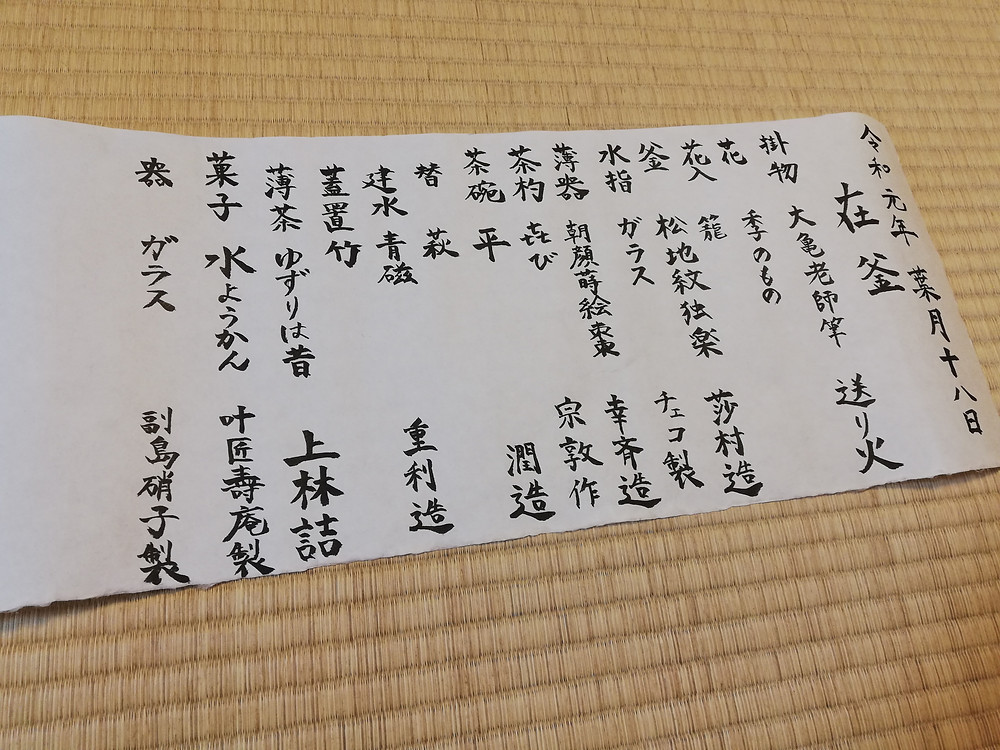 令和元年 葉月十八日
在釜 送り火
掛物 大亀老師筆
花 季のもの
花入 籠
釜 松地紋独楽 莎村造
水指 ガラス チェコ製
薄器 朝顔蒔絵棗 幸斉造
茶杓 㐂び 宗敦作
茶碗 平 潤造
替 萩
建水 青磁 重利造
蓋置 竹
薄茶 ゆずりは昔 上林詰
菓子 水ようかん 叶匠壽庵製
器 ガラス 副島硝子製